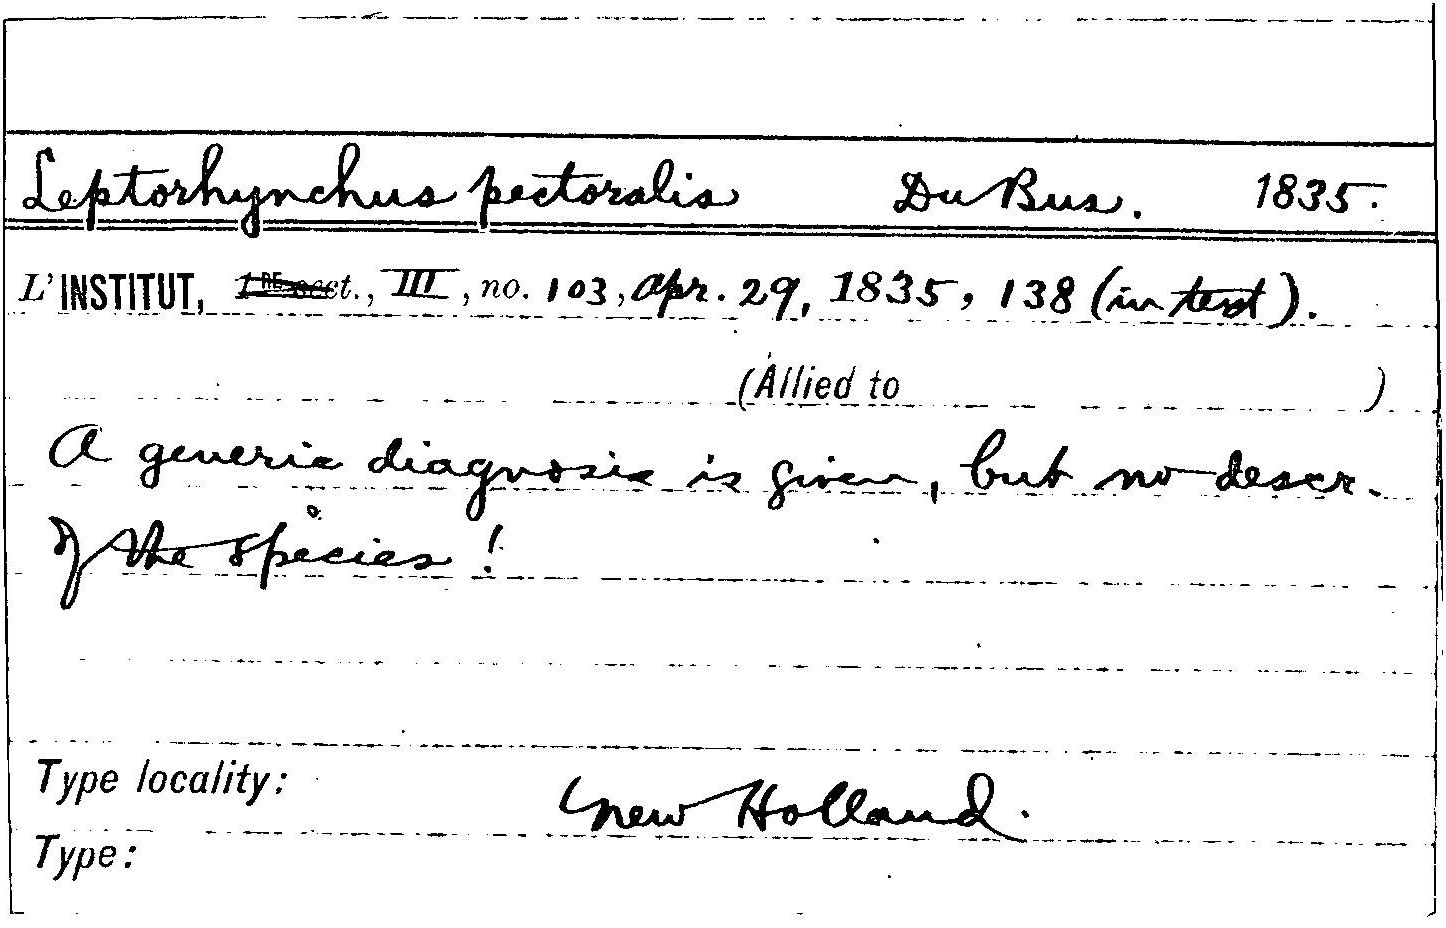 Leptorhynchus pectoralis Du Bus. 1835.
L'INSTITUT, 1RE sect., III, no. 103, Apr. 29, 1835, 138 (in text).
(Allied to )
A generic diagnosis is given, but no descr.
of the species!
Type locality: New Holland.
Type: